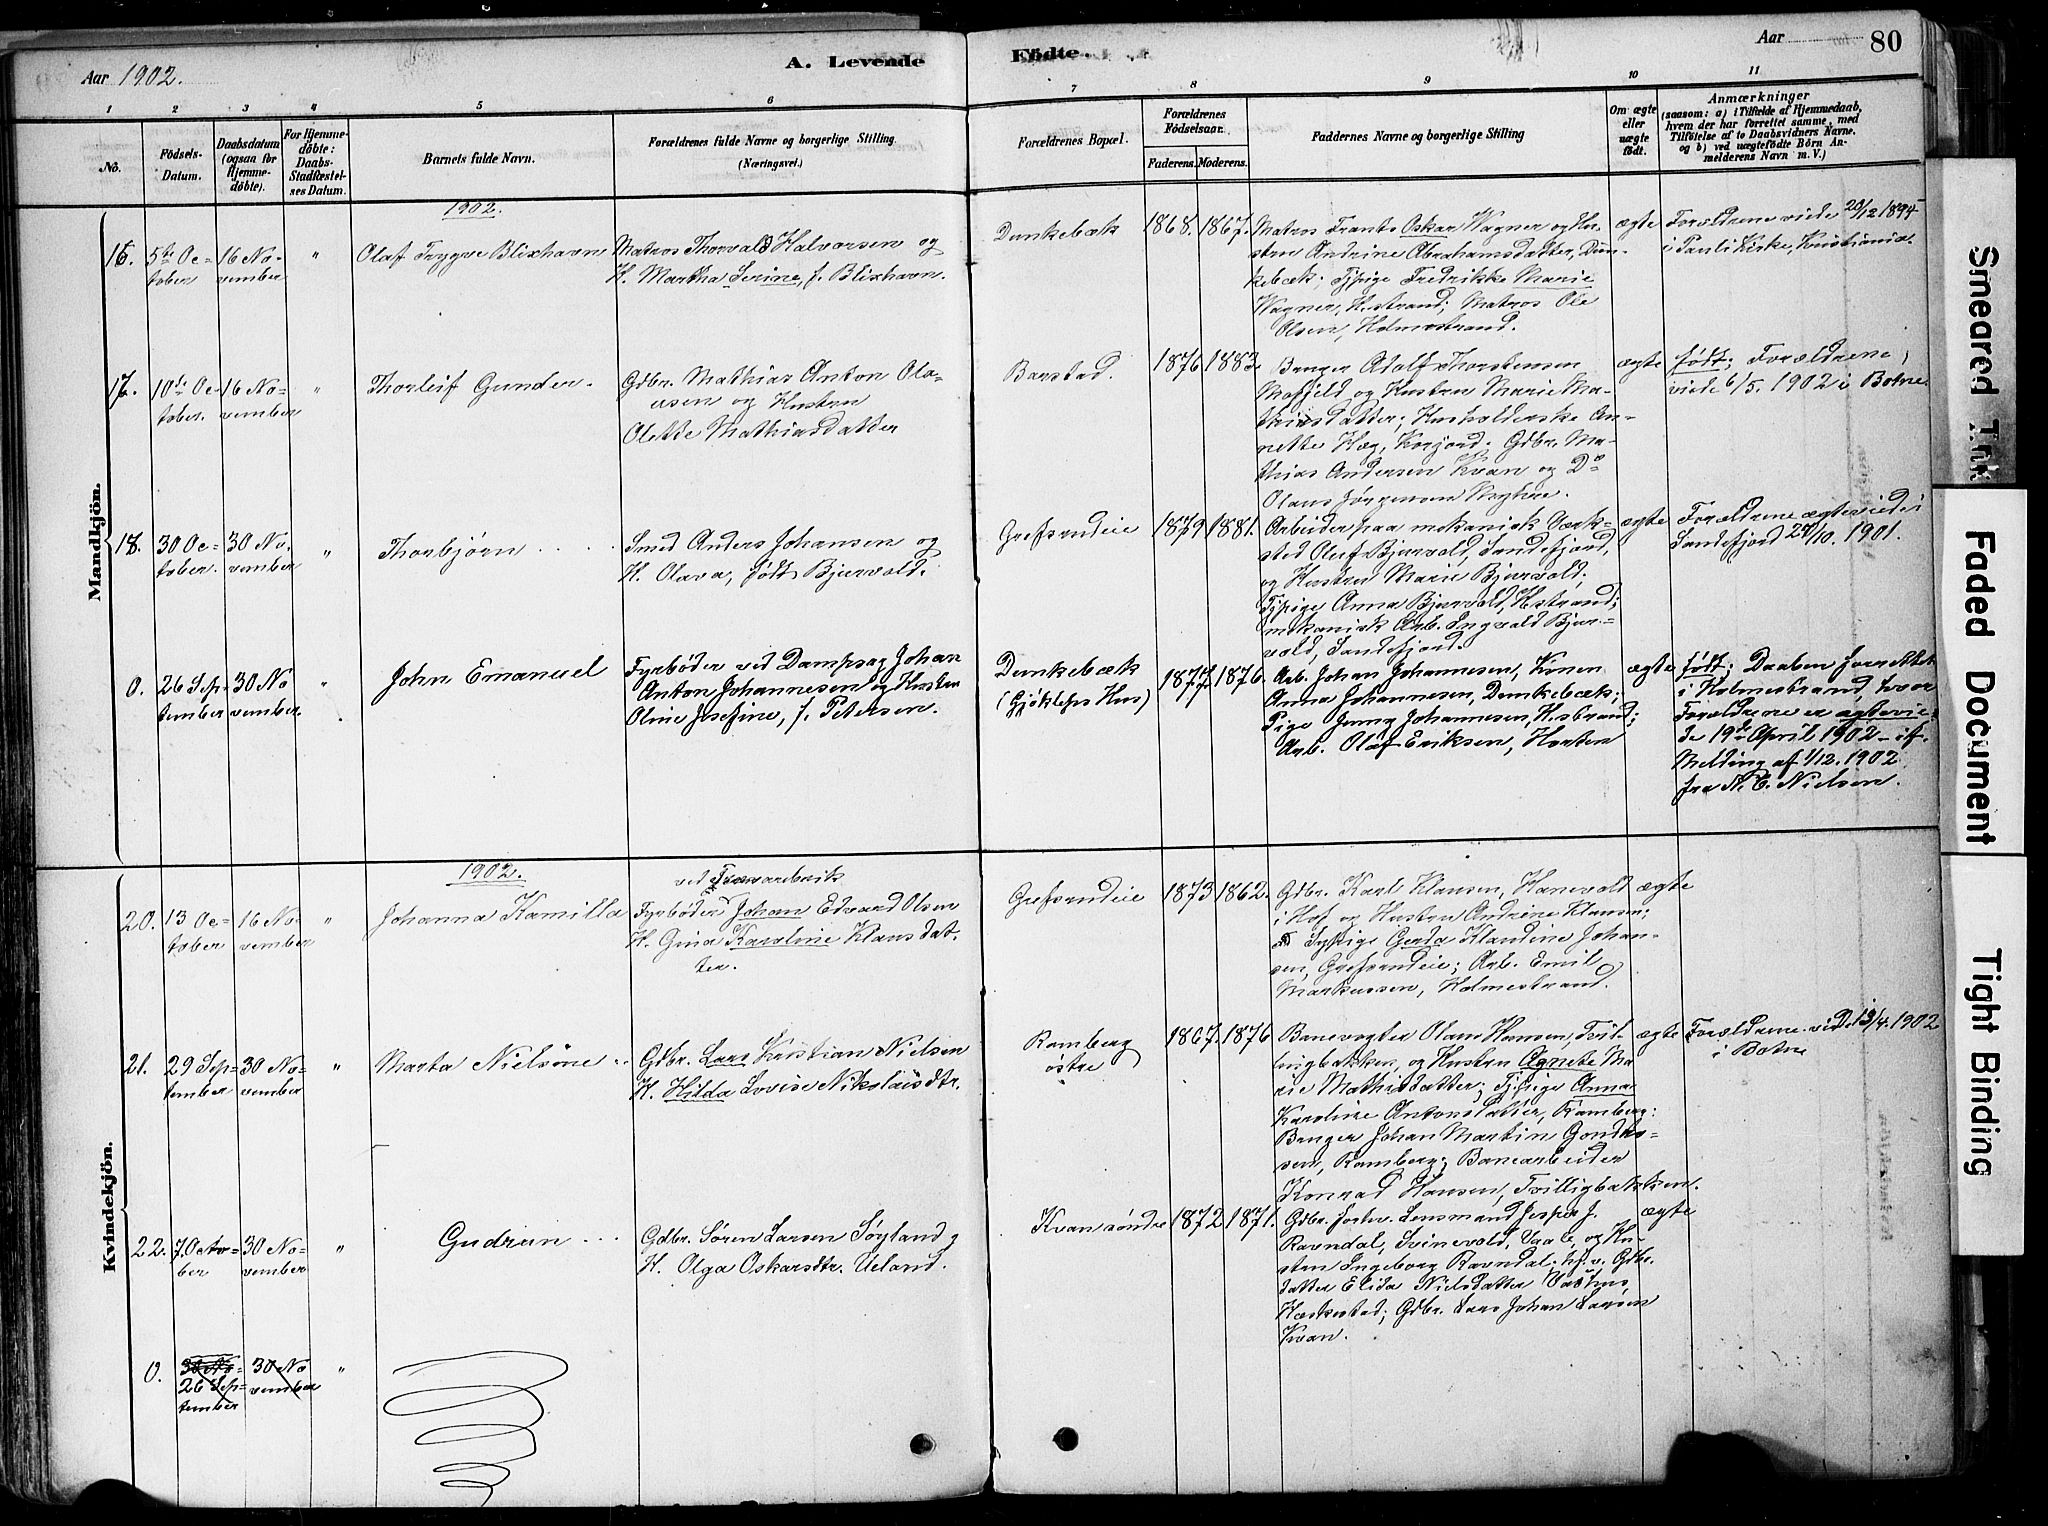 Aar 1902.
A. Levende
Födte.
Aar
80
1
2
3
4
5
6
7
8
9
10
11
No.
Födsels-
Datum.
Daabsdatum
(ogsaa for
Hjemme-
döbte).
For Hjemme-
döbte:
Daabs-
Stadfæstel-
ses Datum.
Barnets fulde Navn.
Forældrenes fulde Navne og borgerlige Stilling
(Næringsvei.)
Forældrenes Bopæl.
Forældrenes
Födselsaar.
Faderens. Moderens.
Faddernes Navne og borgerlige Stilling
Om ægte
eller
uægte
födt.
Anmærkninger
(saasom: a) i Tilfælde af Hjemmedaab,
hvem der har forrettet samme, med
Tilföielse af to Daabsvidners Navne.
og b) ved uægtefödte Börn An-
melderens Navn m. V.)
Mandkjön.
1902.
16.
5te Oc-
tober
16 No-
vember
"
Olaf Trygve Blixhavn
Matros Thorvald Halvorsen og
H. Martha Serine, f. Blixhavn.
Dunkebæk
1868.
1867.
Matros Frants Oskar Wagner og Hu-
stru Andrine Abrahamsdatter, Dun-
kebæk; Tjpige Fredrikke Marie
Wagner, H.strand; Matros Ole
Olsen, Holmestrand.
ægte
Forældrene viede 20/12 1894
i Pauli Kirke, Kristiania.
17.
10de Oc-
tober.
16 No-
vember
"
Thorleif Gunder.
Gdbr. Mathias Anton Ola-
ersen og Hustru
Olette Mathiasdatter
Barstad.
1876
1883.
Bruger Adolf Thorstensen
Mofjeld og Hustru Marie Ma-
thiasdatter; Husholderske An-
nette Hæg, Korjord. Gdbr. Ma-
thias Andersen Kvan og Do
Olaus Jørgensen
ægte
født; Forældrene
viede 6/5. 1902 i Botne
18.
30 Oc-
tober.
30 No-
vember
"
Thorbjørn
Smed Anders Johansen og
H. Olava, født Bjurvold.
Grefsrudeie
1879
1881.
Arbeider paa mekanisk Værk-
sted Oluf Bjurvold, Sandefjord,
og Hustru Marie Bjurvold;
Tjpige Anna Bjurvold, H.strand;
mekanisk Arb. Ingvald Bjur-
vold, Sandefjord.
ægte
Forældrene ægteviede i
Sandefjord 27/10. 1901.
0.
26 Sep-
tember
30 No
vember.
"
John Emanuel
Fyrbøder ved Dampsag Johan
Anton Johannesen og Hustru
Oline Josefine, f. Petersen.
Dunkebæk
(Gjøkleps Hus)
1877.
1876.
Arb. Johan Johannesen, Konen
Anna Johannesen, Dunkebæk;
Pige Jenny Johannesen, H.strand;
Arb. Olaf Eriksen, Horten
ægte
født; Daaben forrettet
i Holmestrand, hvor
Forældrene er ægtevie-
de 19de April 1902 - if.
Melding af 1/12. 1902
fra N. C. Nielsen.
Kvindekjön.
1902.
20.
13 Oc-
tober
16 No-
vember
"
Johanna Kamilla
ved Trævarebrik
Fyrbøder Johan Edvard Olsen
H. Gina Karoline Klausdat-
ter.
Grefsrudeie
1873
1862.
Gdbr. Karl Klausen, Hanevold
i Hof og Hustru Andrine Klausen;
Sypige Gerda Klaudine Johan-
sen, Grefsrudeie; Arb. Emil
Markussen, Holmestrand.
ægte
21.
29 Sep-
tember
30 No-
vember
"
Marta Nielsine
Gdbr. Lars Kristian Nielsen
H. Hilda Lovise Nikolaisdtr.
Ramberg
østre
1867.
1876
Banevogter Olaus Hansen, Tvil-
lingbakken, og Hustru Agnete Ma-
rie Mathisdatter; Tjpige Anna
Karoline Antonsdatter, Ramberg;
Bruger Johan Martin Gundu-
sen, Ramberg; Banearbeider
Konrad Hansen, Tvilligbakken.
ægte
Forældrene viede 19/4. 1902
i Botne
22.
7. Octo-
ber
30 No-
vember
"
Gudrun
Gdbr. Søren Larsen Søyland og
H. Olga Oskarsdtr. Ueland.
Kvan søndre
1872
1871.
Gdbr. forhv. Lensmand Jesper J.
Ravndal, Svinevold, Vaale, og Hu-
stru Ingeborg Ravndal; hj.v. Gdbr.
datter Elida Nielsdatter
Hæskestad; Gdbr. Lars Johan Larsen
Kvan.
ægte
0.
30 No-
26 Sep-
tember
30 No
vember
"
Smeared Ink
Faded Document
Tight Binding